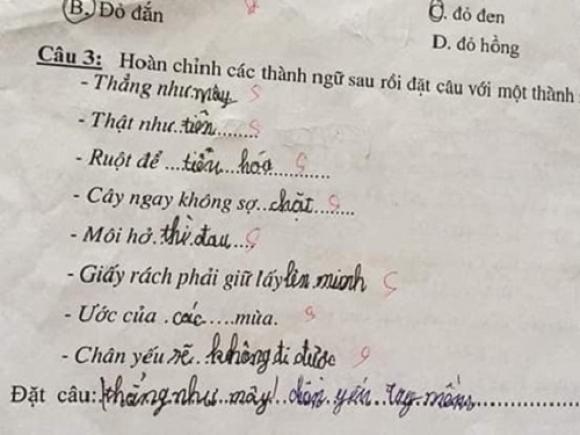 B. Đỏ đắn
C. đỏ đen
D. đỏ hồng
Câu 3: Hoàn chỉnh các thành ngữ sau rồi đặt câu với một thành
- Thẳng như mây
- Thật như..tiền.......
- Ruột để ...tiêu...hóa............
- Cây ngay không sợ..chặt........
- Môi hở.thì.đau....
- Giấy rách phải giữ lấy lên mình
- Ước của .các.....mùa.
- Chân yếu sẽ..không đi được
Đặt câu: thẳng như mây yếu tay mềm................